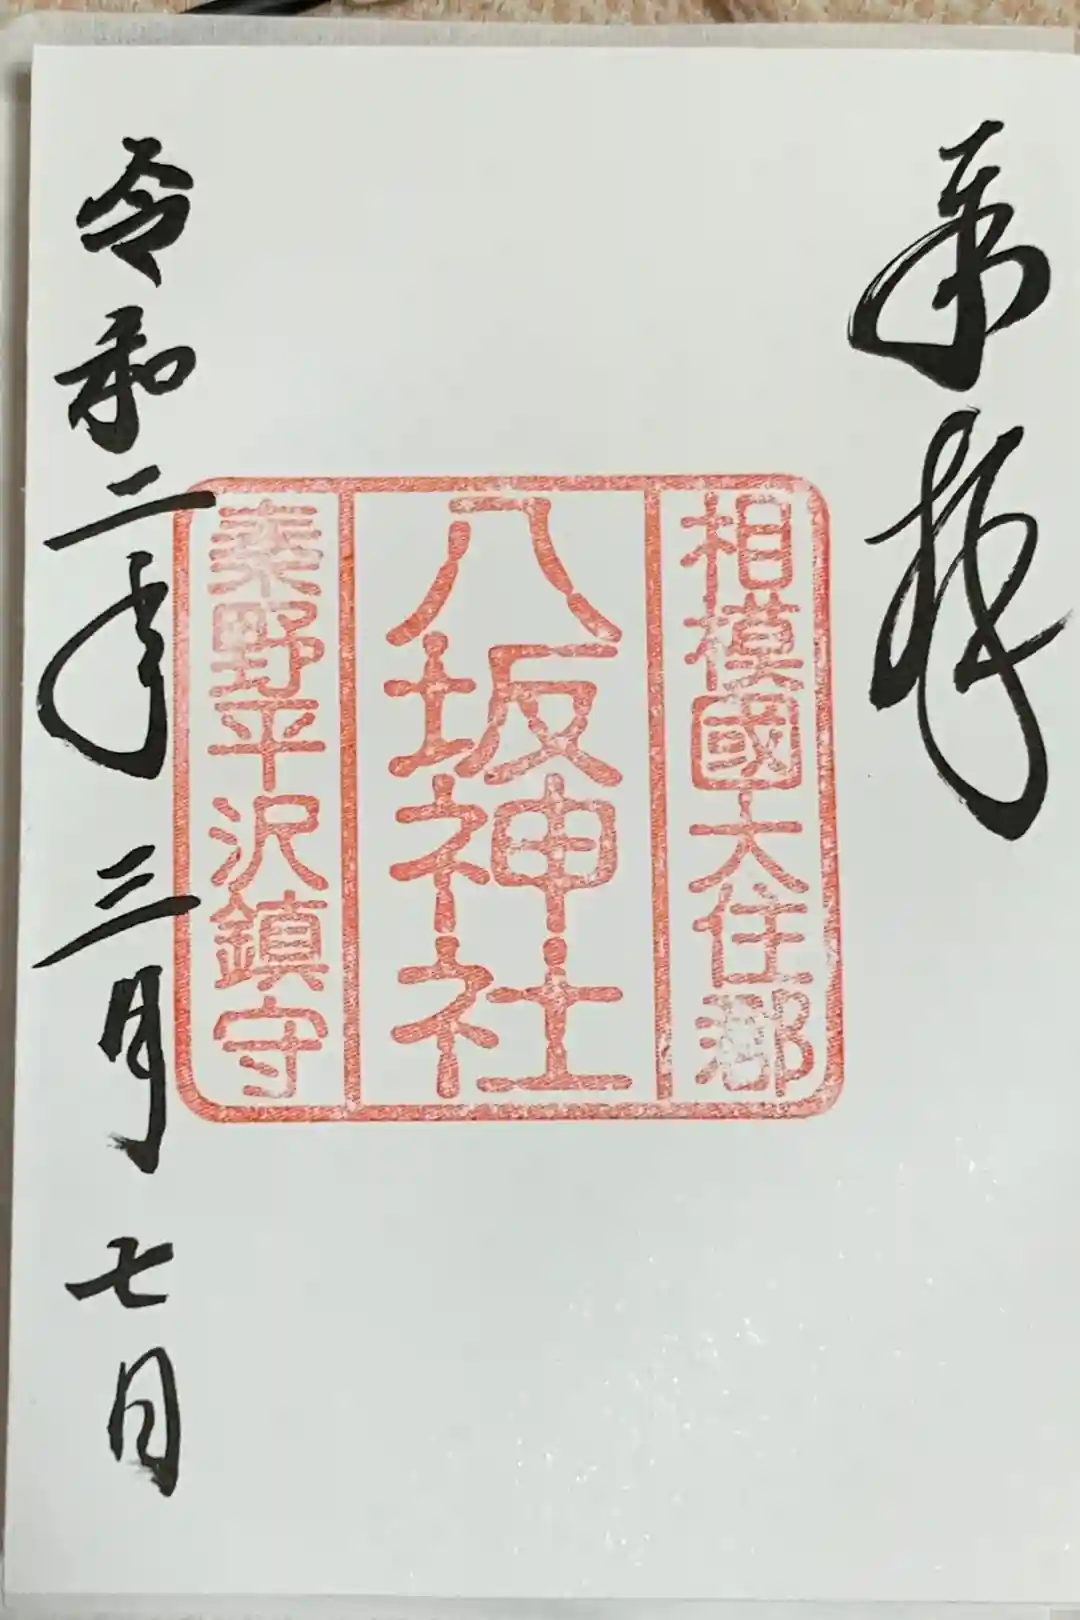 奉拝
相模國大住郡
八坂神社
秦野平沢鎮守
令和二年三月七日